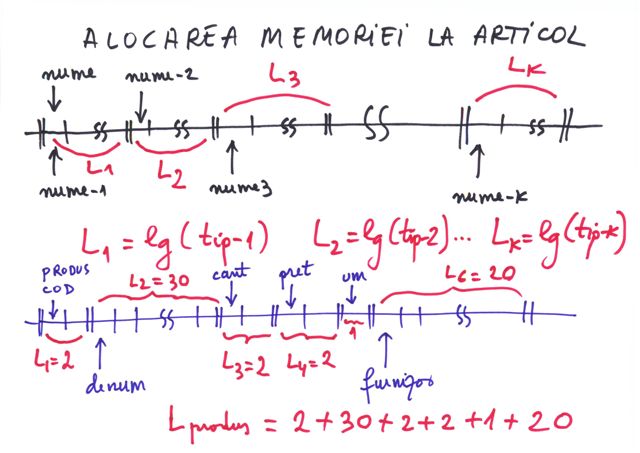 ALOCAREA MEMORIEI LA ARTICOL
nume nume-2 L3 LK
L1 L2
nume-1 nume3 nume-K
L1 = lg(tip-1) L2=lg(tip-2)... LK=lg(tip-k)
PRODUS L2=30 cant pret um L6=20
COD
L1=2 L3=2 L4=2 1
denum furnizor
Lprodus = 2+30+2+2+1+20